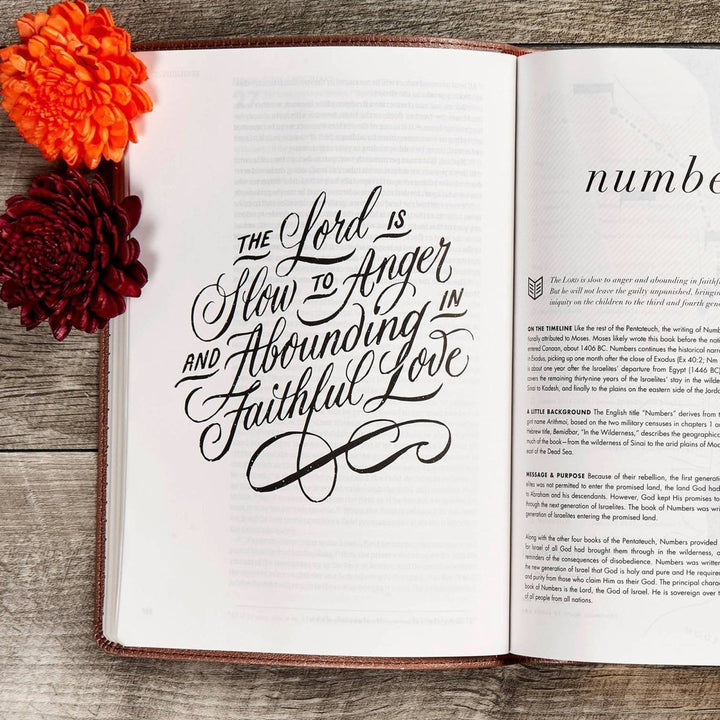 THE Lord IS
Slow TO Anger
AND Abounding IN
Faithful Love
numbe
The LORD is slow to anger and abounding in faithf
But he will not leave the guilty unpunished, bringing
iniquity on the children to the third and fourth gene
ON THE TIMELINE Like the rest of the Pentateuch, the writing of Numb
tionally attributed to Moses. Moses likely wrote this book before the nati
entered Canaan, about 1406 BC. Numbers continues the historical narra
in Exodus, picking up one month after the close of Exodus (Ex 40:2; Nm
is about one year after the Israelites' departure from Egypt (1446 BC)
covers the remaining thirty-nine years of the Israelites' stay in the wilde
Sinai to Kadesh, and finally to the plains on the eastern side of the Jorda
A LITTLE BACKGROUND The English title "Numbers" derives from t
gint name Arithmoi, based on the two military censuses in chapters 1 an
Hebrew title, Bemidbar, "In the Wilderness," describes the geographica
much of the book—from the wilderness of Sinai to the arid plains of Moa
east of the Dead Sea.
MESSAGE & PURPOSE Because of their rebellion, the first generati
elites was not permitted to enter the promised land, the land God had
to Abraham and his descendants. However, God kept His promises to
through the next generation of Israelites. The book of Numbers was writ
generation of Israelites entering the promised land.
Along with the other four books of the Pentateuch, Numbers provided
for Israel of all God had brought them through in the wilderness, a
reminders of the consequences of disobedience. Numbers was written
the new generation of Israel that God is holy and pure and He require
and purity from those who claim Him as their God. The principal charac
book of Numbers is the Lord, the God of Israel. He is sovereign over t
of all people from all nations.